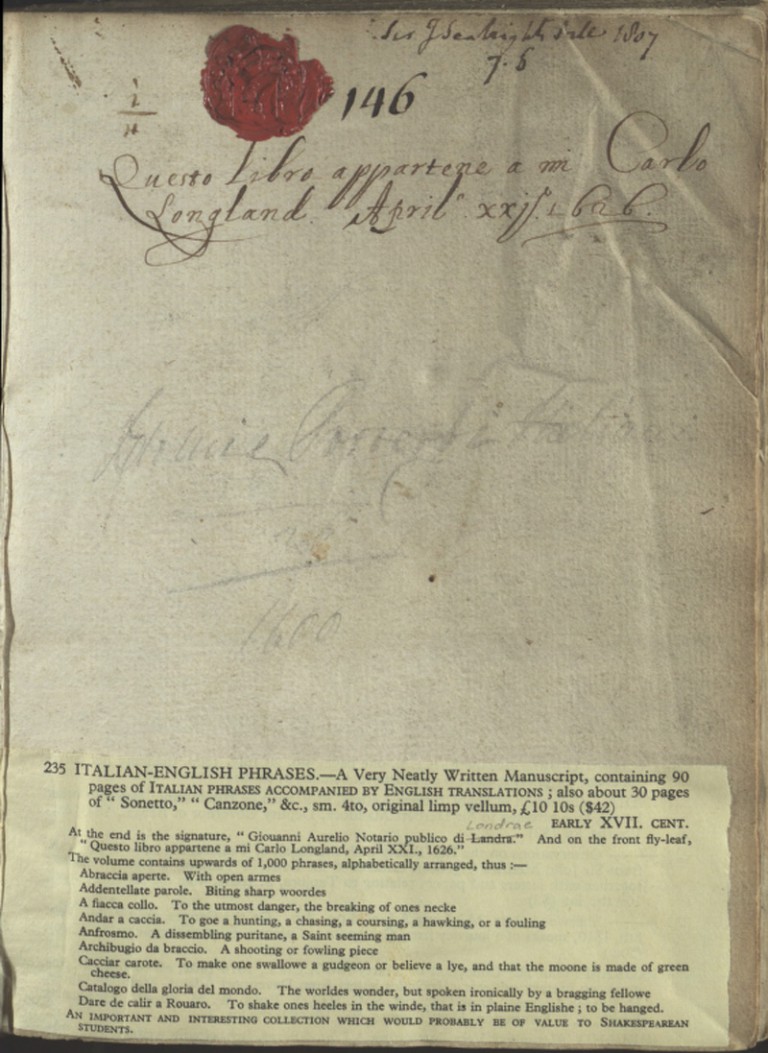 Sir J Seabright's sale 1807
7.6
146
Questo libro appartene a mi Carlo
Longland. April xxj. 1626.
Italian
1600
235 ITALIAN-ENGLISH PHRASES.—A Very Neatly Written Manuscript, containing 90
pages of ITALIAN PHRASES ACCOMPANIED BY ENGLISH TRANSLATIONS ; also about 30 pages
of “ Sonetto,” “ Canzone,” &c., sm. 4to, original limp vellum, £10 10s ($42)
Londrae
EARLY XVII. CENT.
At the end is the signature, “ Giouanni Aurelio Notario publico di Landra.” And on the front fly-leaf,
“ Questo libro appartene a mi Carlo Longland, April XXI., 1626.”
The volume contains upwards of 1,000 phrases, alphabetically arranged, thus :—
Abraccia aperte. With open armes
Addentellate parole. Biting sharp woordes
A fiacca collo. To the utmost danger, the breaking of ones necke
Andar a caccia. To goe a hunting, a chasing, a coursing, a hawking, or a fouling
Anfrosmo. A dissembling puritane, a Saint seeming man
Archibugio da braccio. A shooting or fowling piece
Cacciar carote. To make one swallowe a gudgeon or believe a lye, and that the moone is made of green
cheese.
Catalogo della gloria del mondo. The worldes wonder, but spoken ironically by a bragging fellowe
Dare de calir a Rouaro. To shake ones heeles in the winde, that is in plaine Englishe ; to be hanged.
AN IMPORTANT AND INTERESTING COLLECTION WHICH WOULD PROBABLY BE OF VALUE TO SHAKESPEAREAN
STUDENTS.